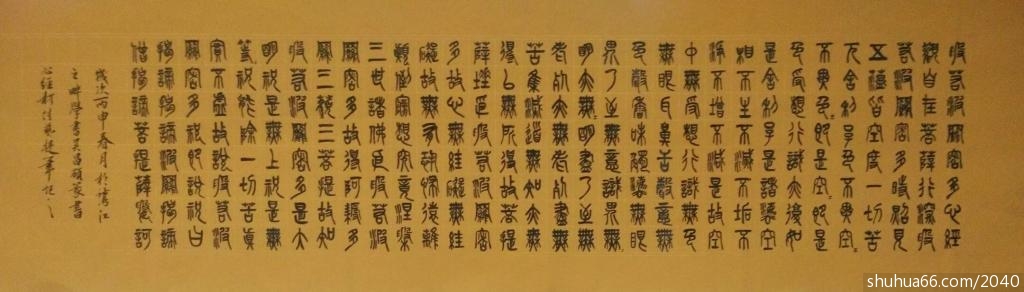 般若波羅密多心經
觀自在菩薩行深般
若波羅密多時照見
五蘊皆空度一切苦
厄舍利子色不異空
不異色即是空即是
色受想行識亦復如
是舍利子是諸法空
相不生不滅不垢不
淨不增不減是故空
中無受想行識無色
無眼耳鼻舌身意無
色聲香味觸法無眼
界乃至無意識界無
明亦無明盡乃至無
老死亦無老死盡無
苦集滅道無知亦無
得以無所得故菩提
薩埵依般若波羅密
多故心無罣礙無罣
礙故無有恐怖遠離
顛倒夢想究竟涅槃
三世諸佛依般若波
羅密多故得阿耨多
羅三藐三菩提故知
般若波羅密多是大
明祝是無上祝是無
等祝能除一切苦真
實不虛故說般若波
羅密多祝即說祝曰
揭諦揭諦波羅揭諦
僧揭諦菩提薩婆訶
歲次丙申春月於江
之畔學書吳昌碩篆書
心經記之
shuhua66.com/2040